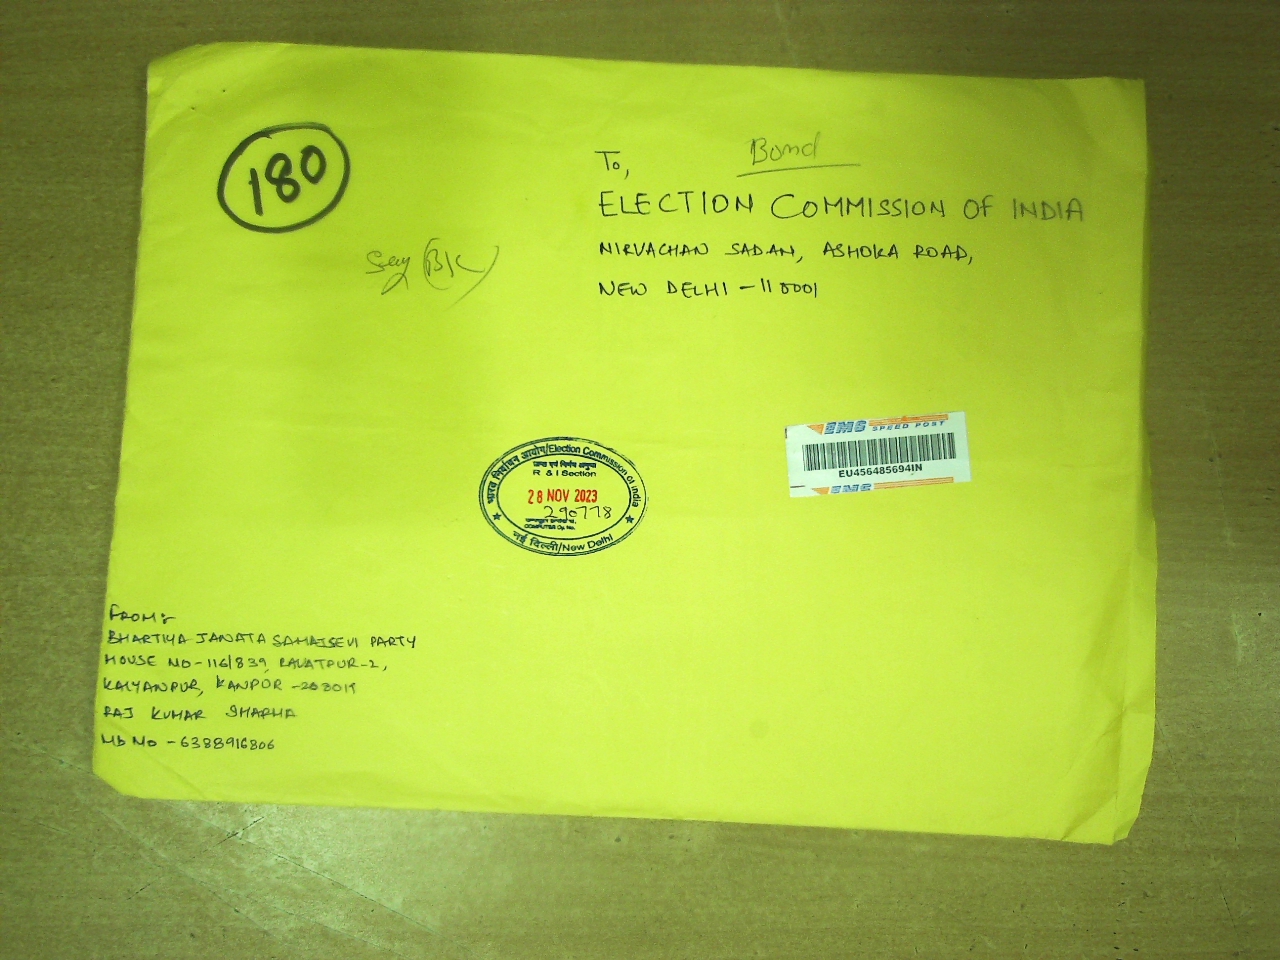 180
Bond
To,
ELECTION COMMISSION OF INDIA
NIRVACHAN SADAN, ASHOKA ROAD,
NEW DELHI - 110001
Secy (BK)
EMS SPEED POST
EU456485694IN
EMS
भारत निर्वाचन आयोग/Election Commission of India
R & I Section
28 NOV 2023
290778
COMPUTER Dy. No.
नई दिल्ली/New Delhi
FROM:-
BHARTIYA JANATA SAMAJSEVI PARTY
HOUSE NO-116/839, RAVATPUR-2,
KALYANPUR, KANPUR -208019
RAJ KUMAR SHARMA
Mb No - 6388916806